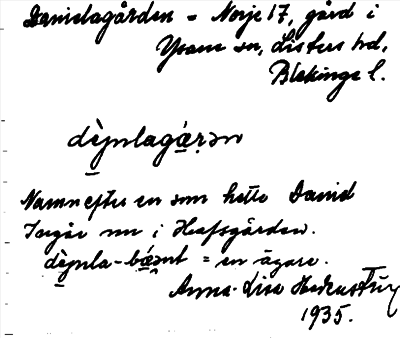 Danielagården = Norje 17, gård i
Ysane sn, Listers hd,
Blekinge l.
dè̱nlagá̱ṛən
Namn efter en som hette David
Ingår nu i Hafsgården.
dè̱nla-bá̱ənt = en ägare.
Anna-Lisa
1935.